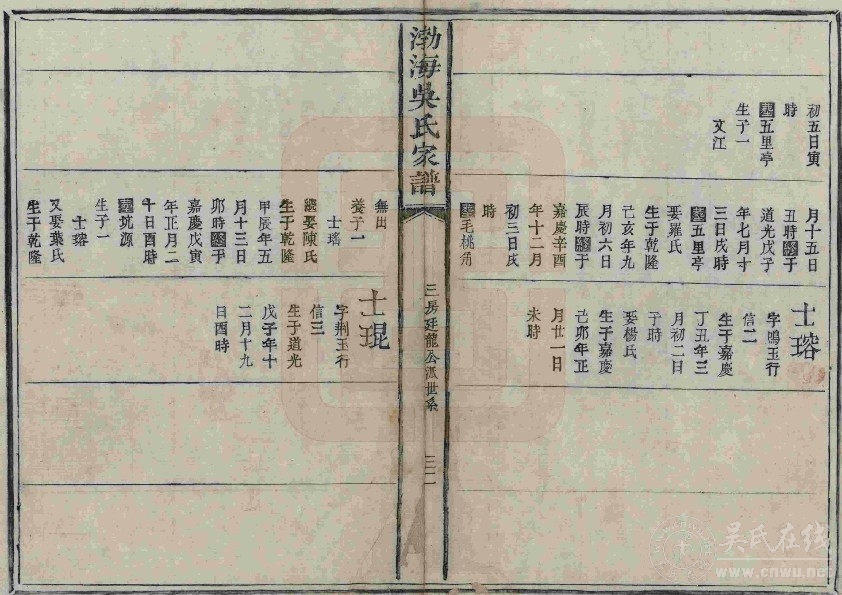 初五日寅
時
塟五里亭
生子一
文江
月十五日
丑時終于
道光戊子
年七月廿
三日戌時
塟五里亭
娶羅氏
生于乾隆
己亥年九
月初六日
辰時終于
嘉慶辛酉
年十二月
初三日戌
時
塟毛桃角
士瑢
字鳴玉行
信二
生于嘉慶
丁丑年三
月初二日
子時
娶楊氏
生于嘉慶
己卯年正
月廿一日
未時
渤海吳氏家譜
三房廷龍公派世系
無出
養子一
士瑤
繼娶陳氏
生于乾隆
甲辰年五
月十三日
卯時終于
嘉慶戊寅
年正月二
十日酉時
塟坑源
生子一
士瑢
又娶葉氏
生于乾隆
士琨
字荆玉行
信三
生于道光
戊子年十
二月十九
日酉時
吴氏在线
www.cnwu.net